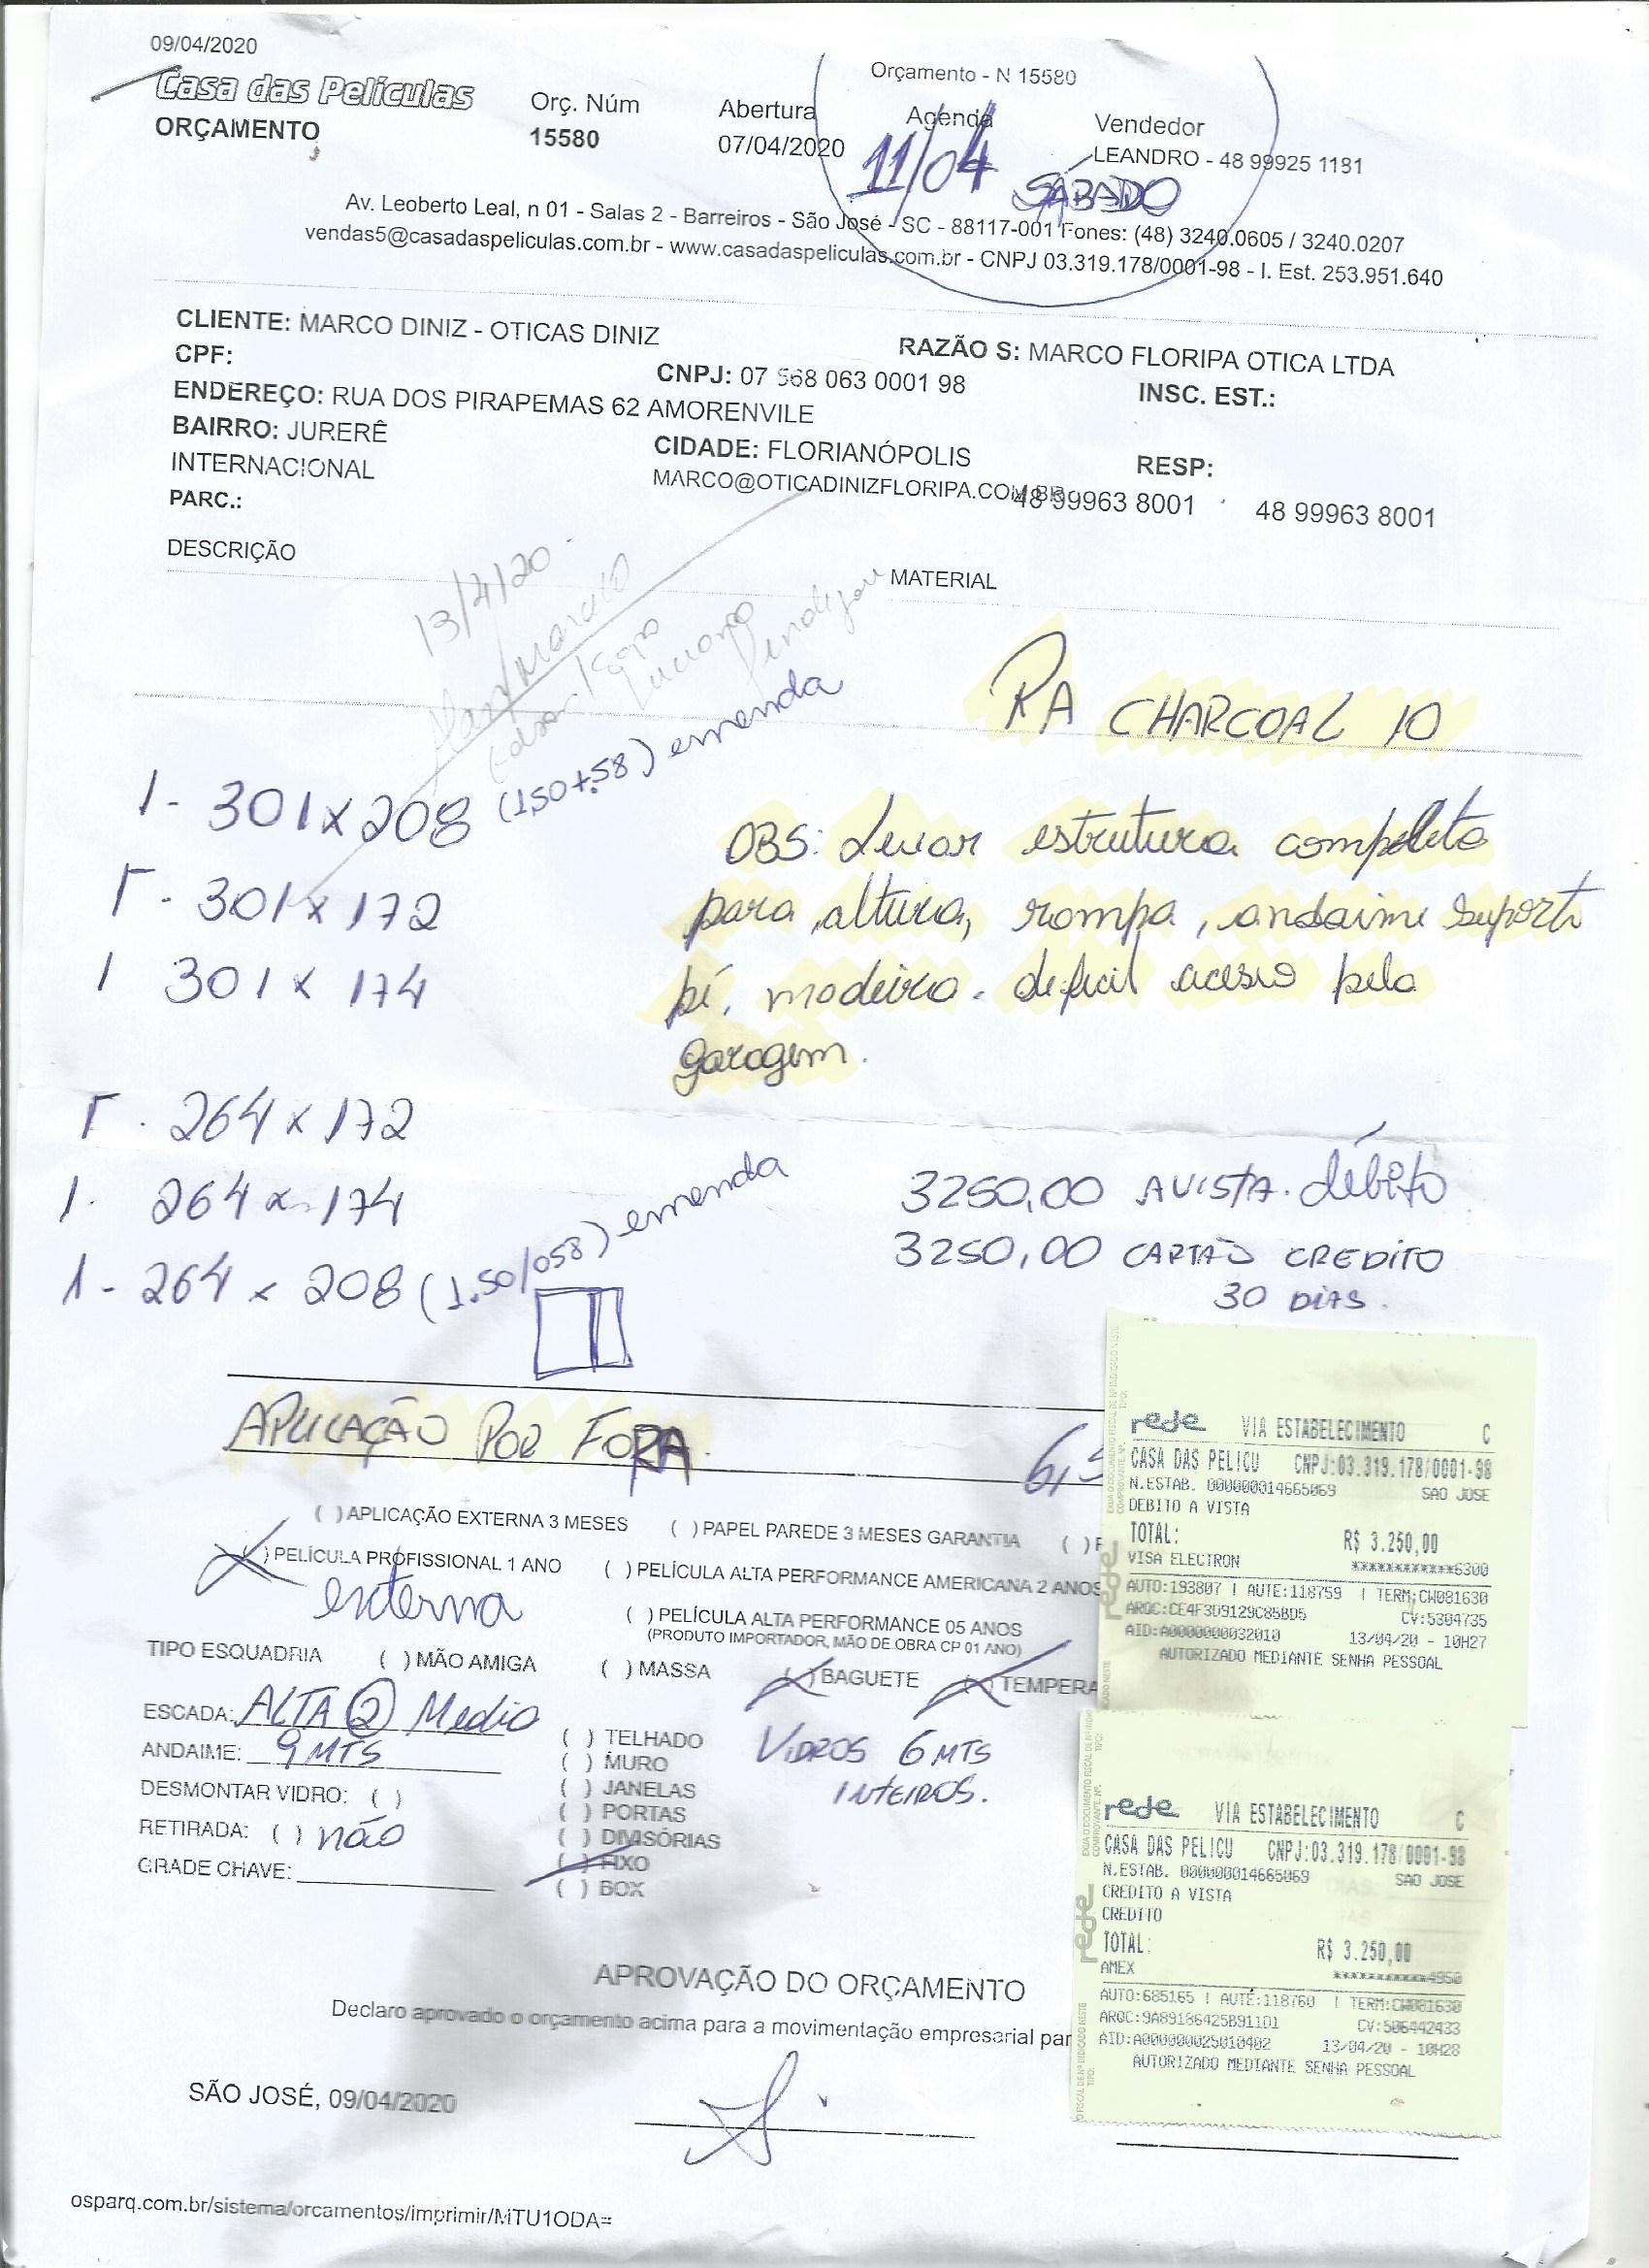 09/04/2020
Orçamento - N 15580
Casa das Películas
ORÇAMENTO
Orç. Núm
15580
Abertura
07/04/2020
Agenda
11/04 SÁBADO
Vendedor
LEANDRO - 48 99925 1181
Av. Leoberto Leal, n 01 - Salas 2 - Barreiros - São José - SC - 88117-001 Fones: (48) 3240.0605 / 3240.0207
vendas5@casadaspeliculas.com.br - www.casadaspeliculas.com.br - CNPJ 03.319.178/0001-98 - I. Est. 253.951.640
CLIENTE: MARCO DINIZ - OTICAS DINIZ
RAZÃO S: MARCO FLORIPA OTICA LTDA
CPF:
CNPJ: 07 568 063 0001 98
INSC. EST.:
ENDEREÇO: RUA DOS PIRAPEMAS 62 AMORENVILE
BAIRRO: JURERÊ
INTERNACIONAL
CIDADE: FLORIANÓPOLIS
RESP:
MARCO@OTICADINIZFLORIPA.COM.BR
48 99963 8001
48 99963 8001
PARC.:
DESCRIÇÃO
MATERIAL
13/4/20
Luciano
RA CHARCOAL 10
1 - 301 x 208 (1,50+.58) emenda
1 - 301 x 172
1 301 x 174
OBS: Levar estrutura completa
para altura, rompa, andaime suporte
pé, madeira. deficil acesso pela
garagem.
1 . 264 x 172
1 . 264 x 174
1 - 264 x 208 (1.50/058) emenda
3250,00 AVISTA. débito
3250,00 CARTÃO CREDITO
30 DIAS.
APLICAÇÃO POR FORA.
6,5
( ) APLICAÇÃO EXTERNA 3 MESES ( ) PAPEL PAREDE 3 MESES GARANTIA ( ) P
( ) PELÍCULA PROFISSIONAL 1 ANO ( ) PELÍCULA ALTA PERFORMANCE AMERICANA 2 ANOS
externa
( ) PELÍCULA ALTA PERFORMANCE 05 ANOS
(PRODUTO IMPORTADOR, MÃO DE OBRA CP 01 ANO)
TIPO ESQUADRIA ( ) MÃO AMIGA ( ) MASSA ( ) BAGUETE ( ) TEMPERA
ESCADA: ALTA (2) Medio
ANDAIME: 9 MTS
DESMONTAR VIDRO: ( )
RETIRADA: ( ) não
GRADE CHAVE:
( ) TELHADO
( ) MURO
( ) JANELAS
( ) PORTAS
( ) DIVISÓRIAS
( ) FIXO
( ) BOX
VIDROS 6 MTS
INTEIROS.
rede VIA ESTABELECIMENTO C
CASA DAS PELICU CNPJ:03.319.178/0001-98
N.ESTAB. 000000014665069 SAO JOSE
DEBITO A VISTA
TOTAL: R$ 3.250,00
VISA ELECTRON ************6300
AUTO:193807 | AUTE:118759 | TERM:CW081630
ARQC:CE4F3D9129C85BD5 CV:5304735
AID:A0000000032010 13/04/20 - 10H27
AUTORIZADO MEDIANTE SENHA PESSOAL
rede VIA ESTABELECIMENTO C
CASA DAS PELICU CNPJ:03.319.178/0001-98
N.ESTAB. 000000014665069 SAO JOSE
CREDITO A VISTA
CREDITO
TOTAL: R$ 3.250,00
AMEX ***********4950
AUTO:685165 | AUTE:118760 | TERM:CW081630
ARQC:9A89186425B911D1 CV:506442433
AID:A000000025010402 13/04/20 - 10H28
AUTORIZADO MEDIANTE SENHA PESSOAL
APROVAÇÃO DO ORÇAMENTO
Declaro aprovado o orçamento acima para a movimentação empresarial par
SÃO JOSÉ, 09/04/2020
osparq.com.br/sistema/orcamentos/imprimir/MTU1ODA=